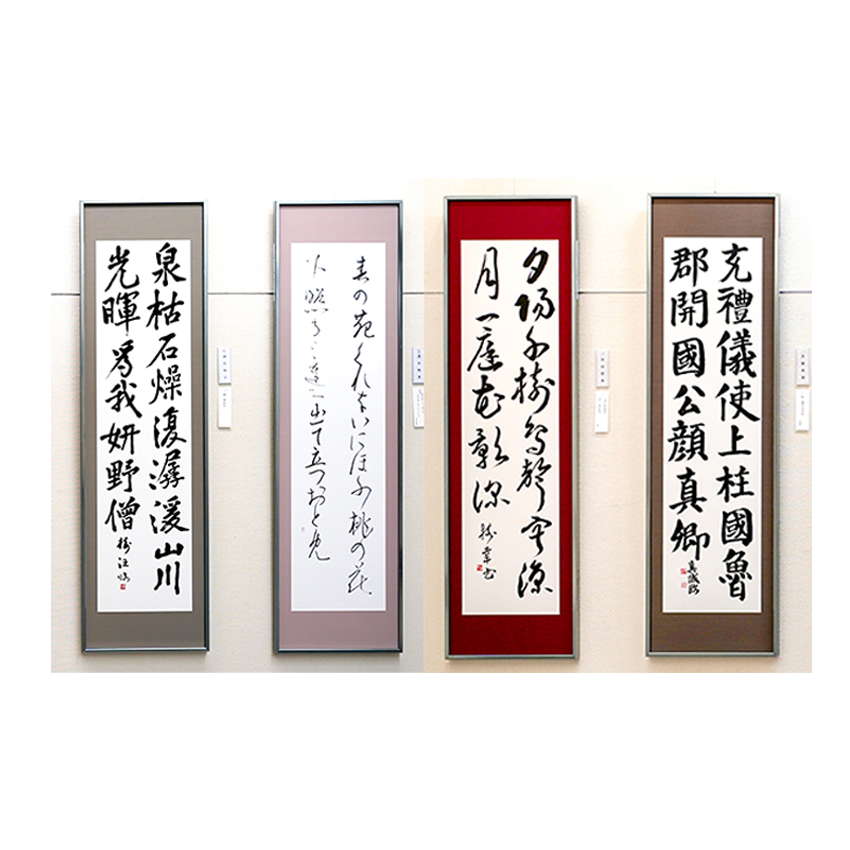 泉枯石燥復潺湲山川
光暉爲我妍野僧
春の苑くれなゐにほふ桃の花
下照る道に出て立つおとめ
夕陽千樹鳥聲涼
月一庭花影深
充禮儀使上柱國魯
郡開國公顔真卿